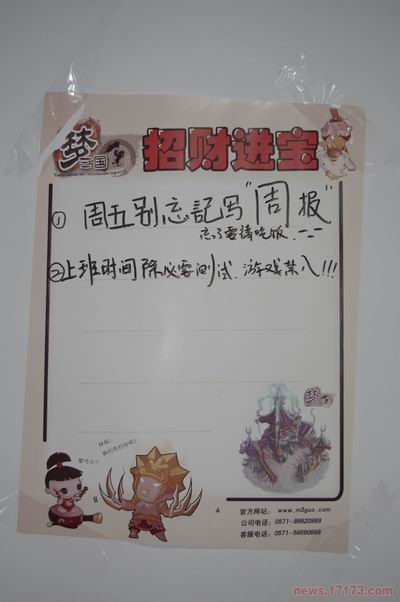 梦三国
招财进宝
① 周五别忘记写"周报"
忘了要请吃饭.-_-
②上班时间除必要测试.游戏禁入!!!
官方网站: www.m3guo.com
公司电话: 0571-88820989
客服电话: 0571-56690668
news.17173.com